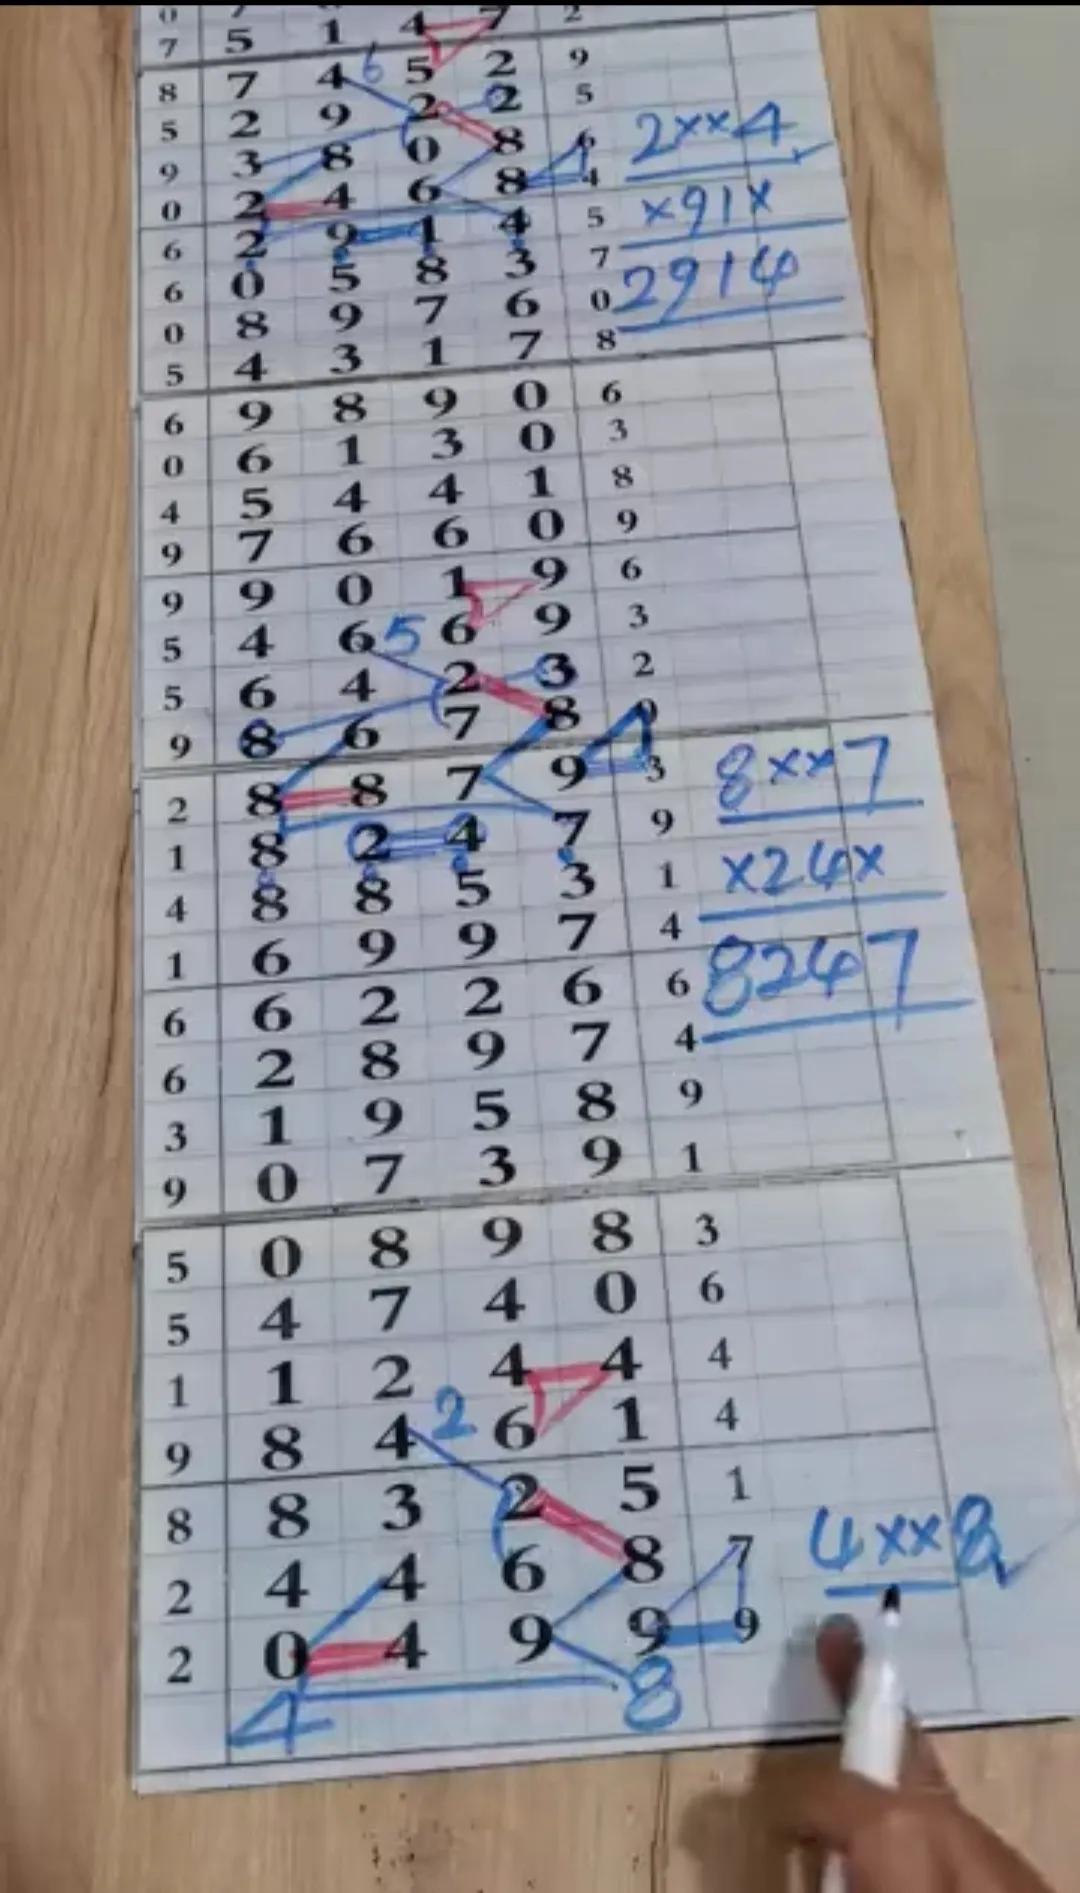 7 5 1 4 7 2
8 7 4 6 5 2 9
5 2 9 2 2 5
9 3 8 0 8 6 2××4
0 2 4 6 8 4
6 2 9 1 4 5 ×91×
6 0 5 8 3 7
0 8 9 7 6 0 2914
5 4 3 1 7 8
6 9 8 9 0 6
0 6 1 3 0 3
4 5 4 4 1 8
9 7 6 6 0 9
9 9 0 1 9 6
5 4 6 5 6 9 3
5 6 4 2 3 2
9 8 6 7 8 9
2 8 8 7 9 3 8××7
1 8 2 4 7 9
4 8 8 5 3 1 ×24×
1 6 9 9 7 4
6 6 2 2 6 6 8247
6 2 8 9 7 4
3 1 9 5 8 9
9 0 7 3 9 1
5 0 8 9 8 3
5 4 7 4 0 6
1 1 2 4 4 4
9 8 4 2 6 1 4
8 8 3 2 5 1
2 4 4 6 8 7 4××8
2 0 4 9 9 9
4 8